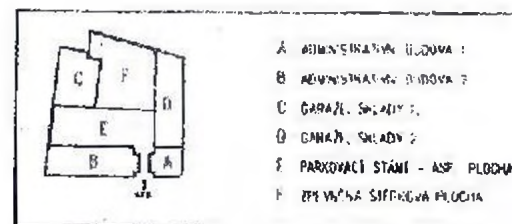 C
F
D
E
B
A
A ADMINISTRATIVNÍ BUDOVA 1
B ADMINISTRATIVNÍ BUDOVA 2
C GARÁŽE, SKLADY 1
D GARÁŽE, SKLADY 2
E PARKOVACÍ STÁNÍ - ASF. PLOCHA
F ZPEVNĚNÁ ŠTĚRKOVÁ PLOCHA